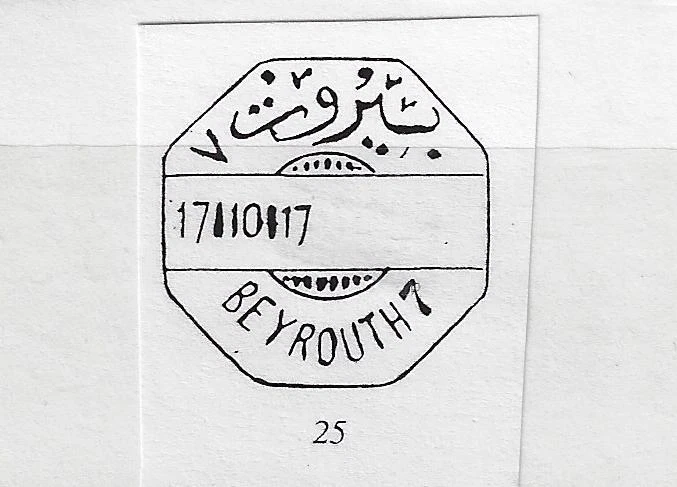 بيروت ٧
17 10 17
BEYROUTH 7
25